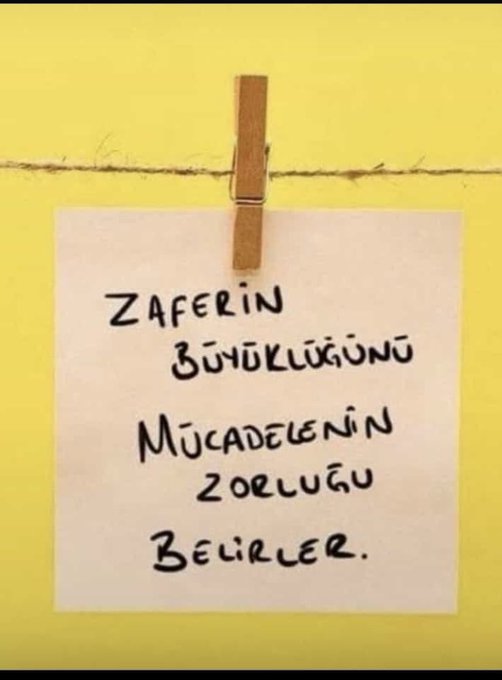 ZAFERİN
BÜYÜKLÜĞÜNÜ
MÜCADELENİN
ZORLUĞU
BELİRLER.